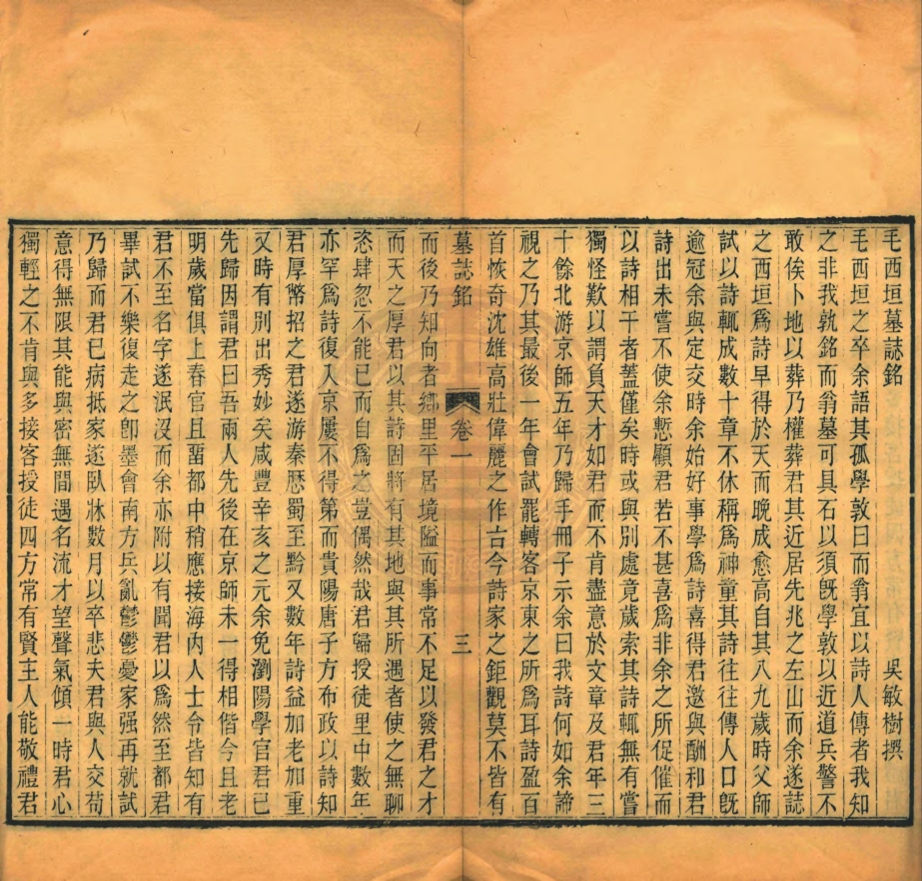 毛西垣墓誌銘
吳敏樹撰
毛西垣之卒余語其孤學敦曰而翁宜以詩人傳者我知
之非我孰銘而翁墓可具石以須旣學敦以近道兵警不
敢俟卜地以葬乃權葬君其近居先兆之左山而余遂誌
之西垣爲詩早得於天而晚成愈高自其八九歲時父師
試以詩輒成數十章不休稱爲神童其詩往往傳人口旣
逾冠余與定交時余始好事學爲詩喜得君邀與酬和君
詩出未嘗不使余慙顧君若不甚喜爲非余之所促催而
以詩相干者蓋僅矣時或與別處竟歲索其詩輒無有嘗
獨怪歎以謂負天才如君而不肯盡意於文章及君年三
十餘北游京師五年乃歸手冊子示余曰我詩何如余諦
視之乃其最後一年會試罷轉客京東之所爲耳詩盈百
首恢奇沈雄高壯偉麗之作古今詩家之鉅觀莫不皆有
墓誌銘
卷一
三
而後乃知向者鄉里平居境隘而事常不足以發君之才
而天之厚君以其詩固將有其地與其所遇者使之無聊
恣肆忽不能已而自爲之豈偶然哉君歸授徒里中數年
亦罕爲詩復入京屢不得第而貴陽唐子方布政以詩知
君厚幣招之君遂游秦歷蜀至黔又數年詩益加老加重
又時有別出秀妙矣咸豐辛亥之元余免瀏陽學官君已
先歸因謂君曰吾兩人先後在京師未一得相偕今且老
明歲當俱上春官且畱都中稍應接海內人士令皆知有
君不至名字遂泯沒而余亦附以有聞君以爲然至都君
畢試不樂復走之卽墨會南方兵亂鬱鬱憂家强再就試
乃歸而君已病抵家遂臥牀數月以卒悲夫君與人交苟
意得無限其能與密無間遇名流才望聲氣傾一時君心
獨輕之不肯與多接客授徒四方常有賢主人能敬禮君